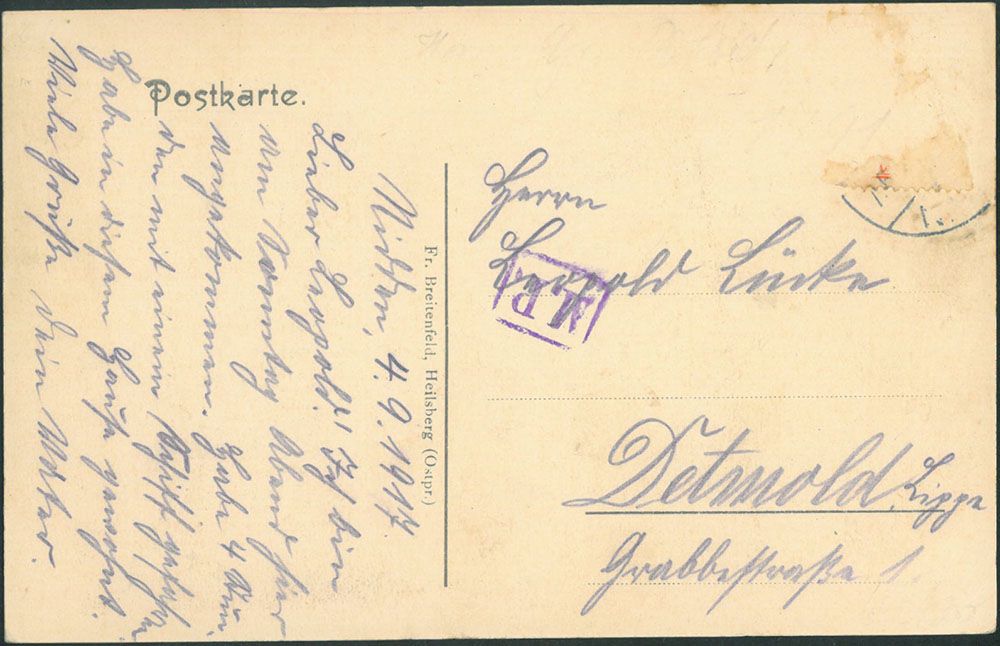 Postkarte.
Nidden, 4.9.1917.
Lieber Leopold! Ich bin
am Sonntag Abend hier
angekommen. Habe 4 Stun-
den mit einem Schiff gefahren
Habe in diesem Hause gewohnt.
Viele Grüße Dein Vater.
Fr. Breitenfeld, Heilsberg (Ostpr.)
Herrn
Leopold Lücke
Detmold, Lippe
Grabbestraße 1.